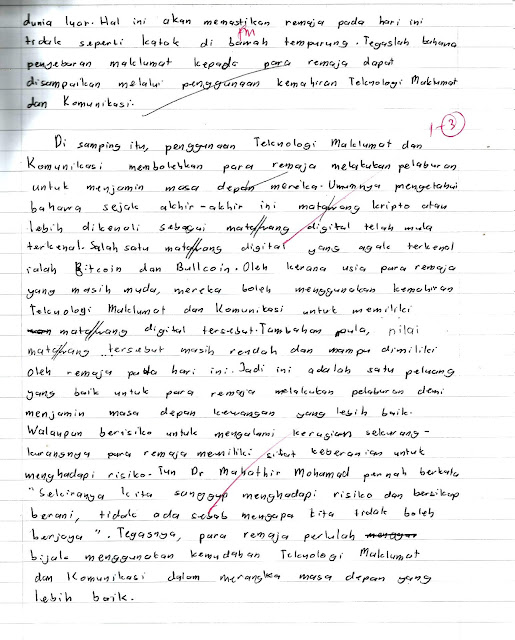 dunia luar. Hal ini akan memastikan remaja pada hari ini
tidak seperti katak di bawah tempurung. Tegaslah bahawa
penyebaran maklumat kepada para remaja dapat
disampaikan melalui penggunaan kemahiran Teknologi Maklumat
dan Komunikasi.
1-3
Di samping itu, penggunaan Teknologi Maklumat dan
Komunikasi membolehkan para remaja melakukan pelaburan
untuk menjamin masa depan mereka. Umumnya mengetahui
bahawa sejak akhir-akhir ini matawang kripto atau
lebih dikenali sebagai matawang digital telah mula
terkenal. Salah satu matawang digital yang agak terkenal
ialah Bitcoin dan Bullcoin. Oleh kerana usia para remaja
yang masih muda, mereka boleh menggunakan kemahiran
Teknologi Maklumat dan Komunikasi untuk memiliki
matawang digital tersebut. Tambahan pula, nilai
matawang tersebut masih rendah dan mampu dimiliki
oleh remaja pada hari ini. Jadi ini adalah satu peluang
yang baik untuk para remaja melakukan pelaburan demi
menjamin masa depan kewangan yang lebih baik.
Walaupun berisiko untuk mengalami kerugian sekurang-
kurangnya para remaja memiliki sifat keberanian untuk
menghadapi risiko. Tun Dr Mahathir Mohamad pernah berkata
"Sekiranya kita sanggup menghadapi risiko dan bersikap
berani, tidak ada sebab mengapa kita tidak boleh
berjaya". Tegasnya, para remaja perlulah
bijak menggunakan kemudahan Teknologi Maklumat
dan Komunikasi dalam merangka masa depan yang
lebih baik.